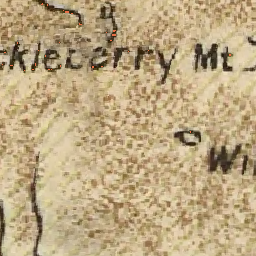 g
ckleberry Mt
Wi